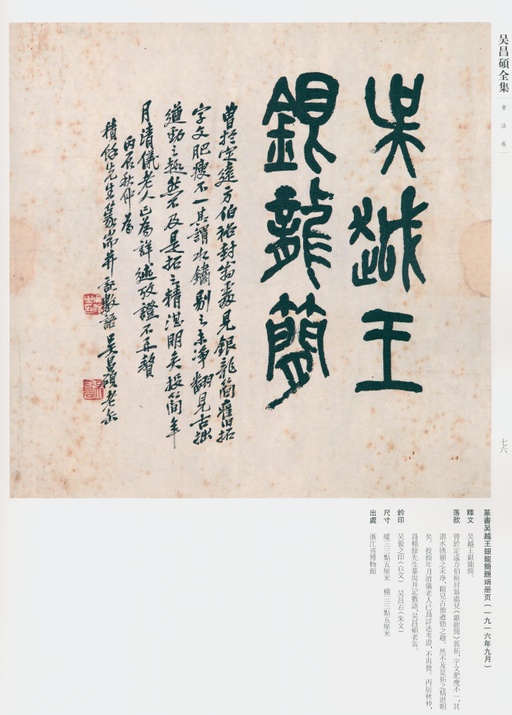 吴昌碩全集
書法卷
七六
吳越王
銀龍簡
曾於定遠方伯裕封翁處見銀龍簡舊拓
字文肥瘦不一其謂水鏽剔之未淨翻見古拙
遒勁之趣然不及是拓之精湛明矣投簡年
月清儀老人已為詳述攷證不再贅
丙辰秋仲為
積餘先生篆耑并記數語吳昌碩老缶
篆書吳越王銀龍簡題端册页（一九一六年九月）
釋文　吴越王銀龍簡。
落款　曾於定遠方伯裕封翁處見《銀龍簡》舊拓，字文肥瘦不一，其
謂水銹剔之未淨，翻見古拙遒勁之趣，然不及是拓之精湛明
矣。投簡年月清儀老人已爲詳述考證，不再贅。丙辰秋仲，
爲積餘先生篆耑并記數語，吴昌碩老缶。
鈐印　吴俊之印（白文）　吴昌石（朱文）
尺寸　縱三三點五厘米　橫三三點五厘米
出處　浙江省博物館